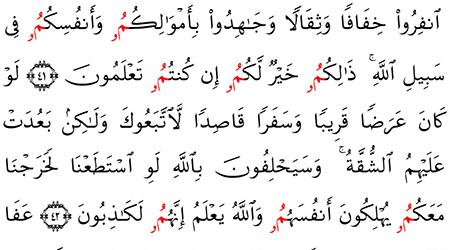 ٱنفِرُواْ خِفَافًا وَثِقَالًا وَجَٰهِدُواْ بِأَمْوَٰلِكُمُۥ وَأَنفُسِكُمُۥ فِى
سَبِيلِ ٱللَّهِۚ ذَٰلِكُمُۥ خَيْرٌ لَّكُمُۥ إِن كُنتُمُۥ تَعْلَمُونَ ۝٤١ لَوْ
كَانَ عَرَضًا قَرِيبًا وَسَفَرًا قَاصِدًا لَّٱتَّبَعُوكَ وَلَٰكِنۢ بَعُدَتْ
عَلَيْهِمُ ٱلشُّقَّةُۚ وَسَيَحْلِفُونَ بِٱللَّهِ لَوِ ٱسْتَطَعْنَا لَخَرَجْنَا
مَعَكُمُۥ يُهْلِكُونَ أَنفُسَهُمُۥ وَٱللَّهُ يَعْلَمُ إِنَّهُمُۥ لَكَٰذِبُونَ ۝٤٢ عَفَا